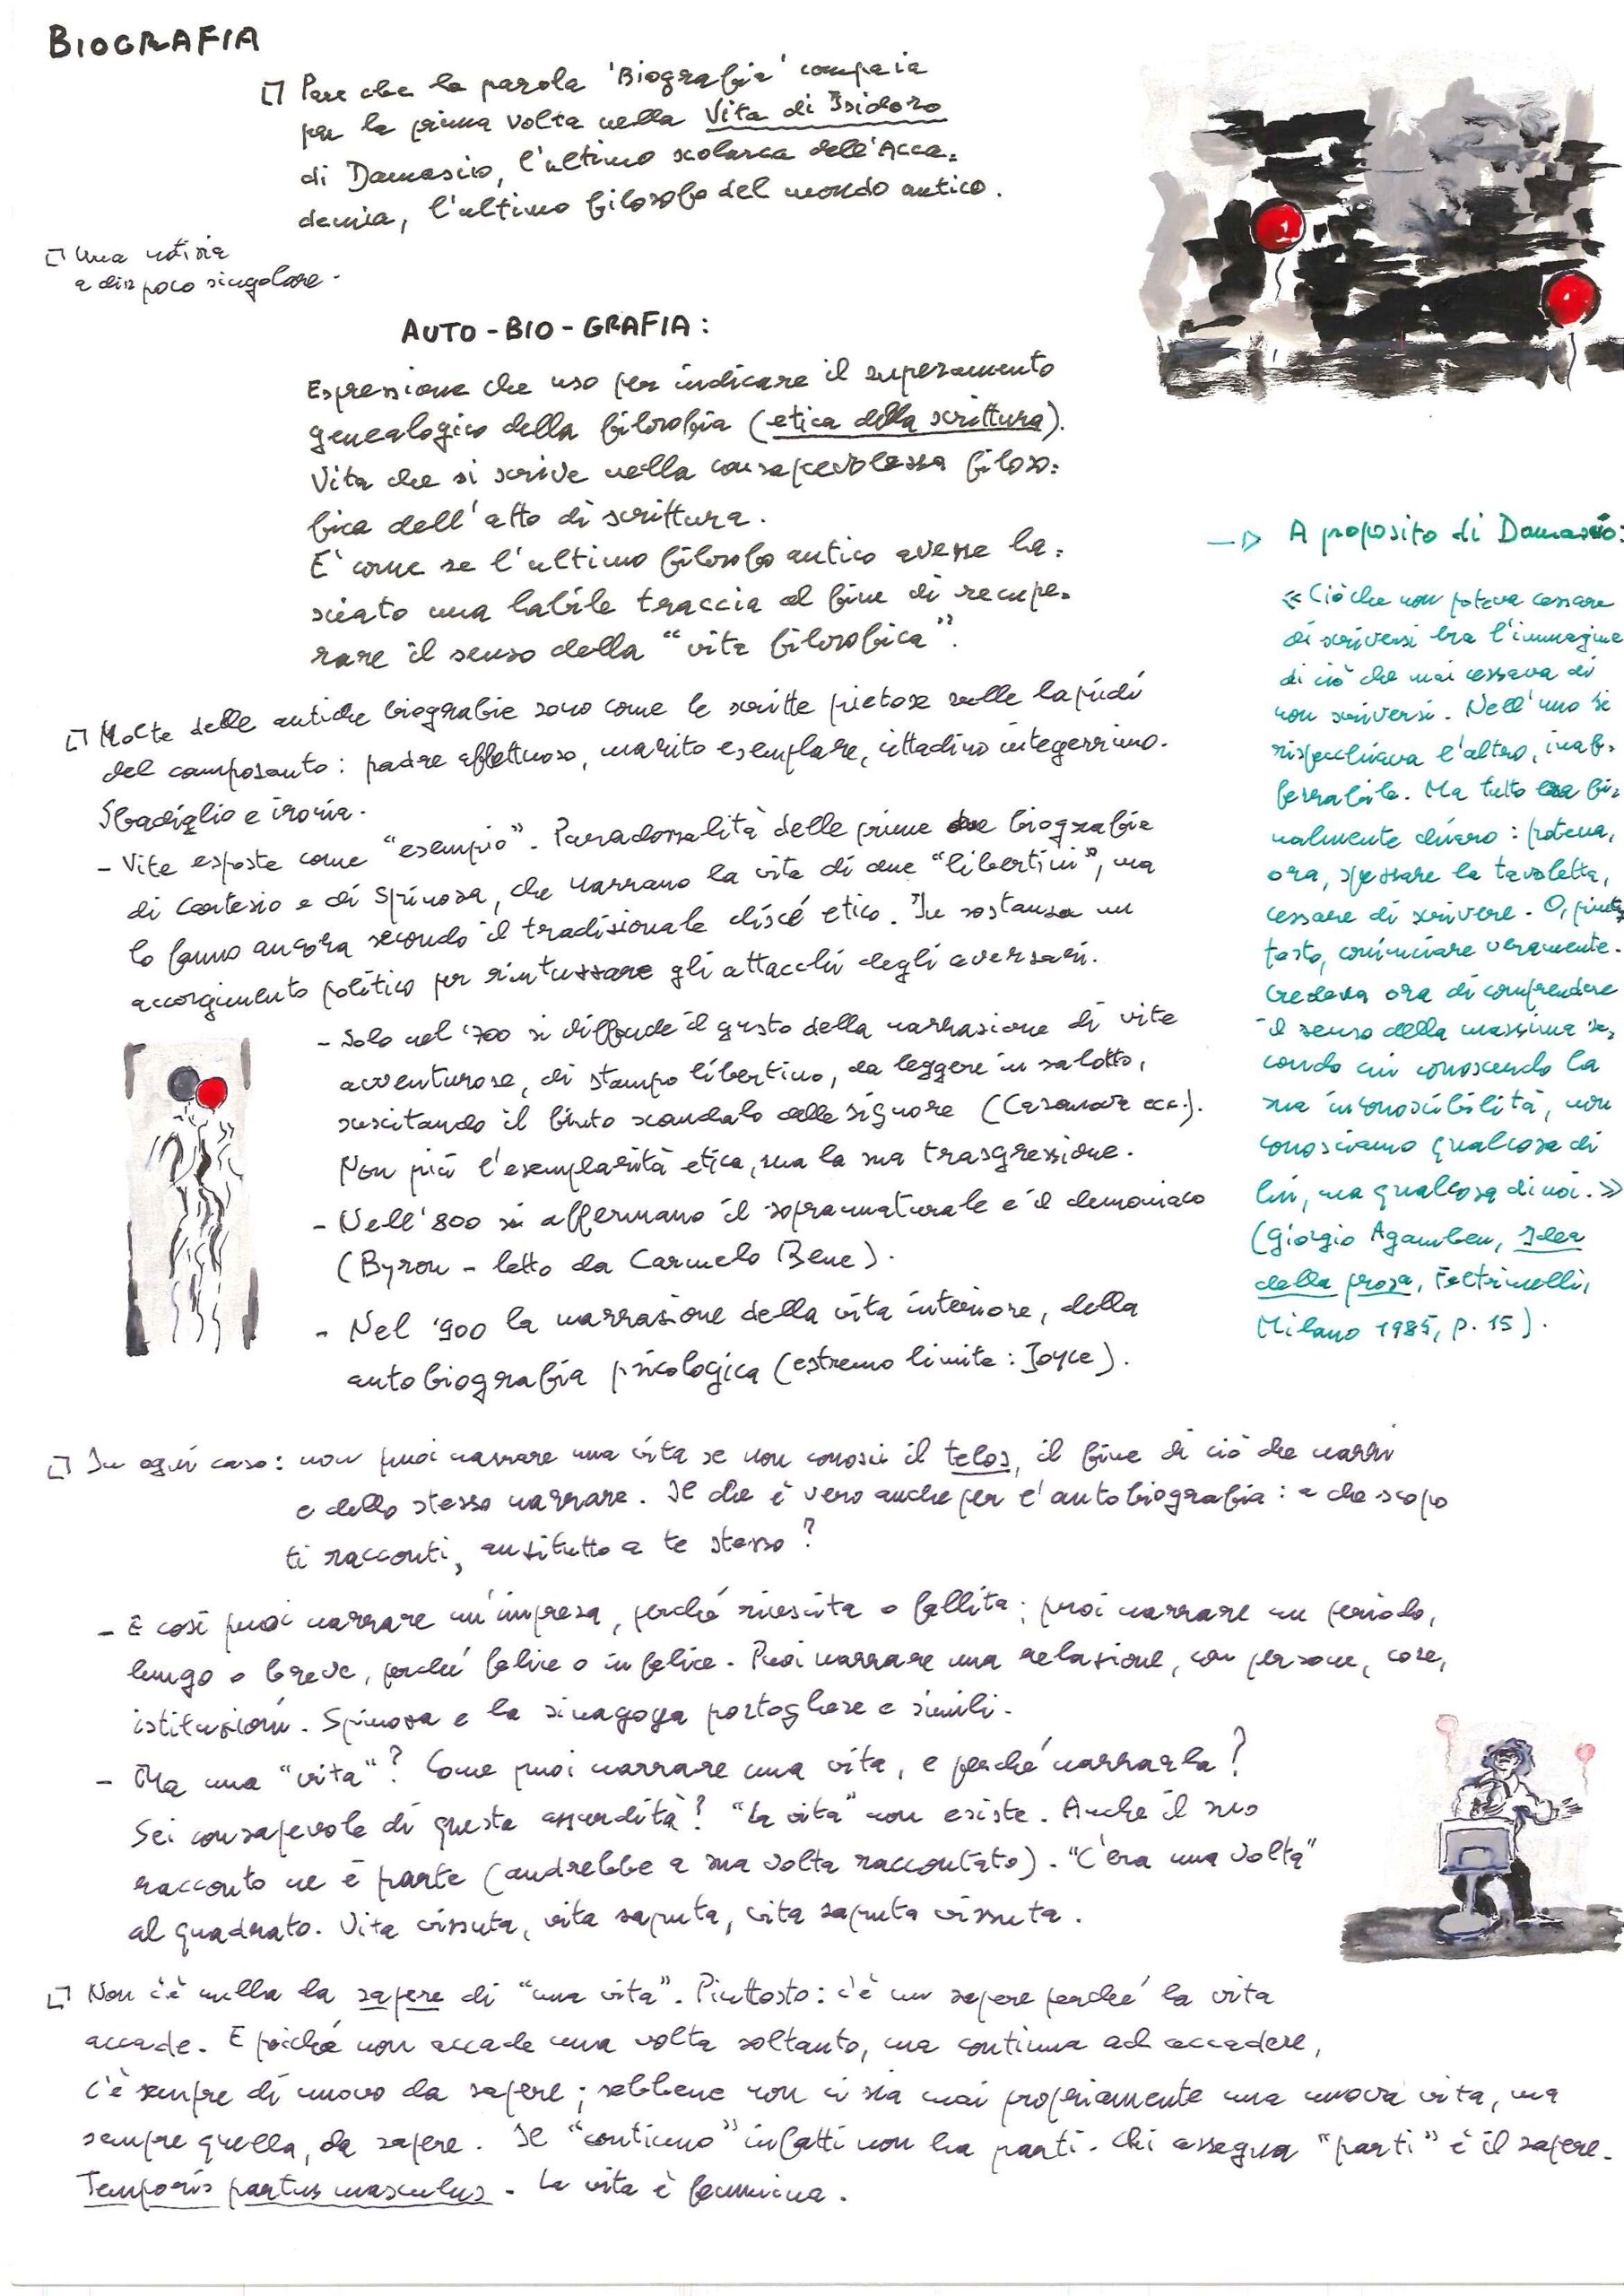 BIOGRAFIA
Pare che la parola 'Biografia' compaia
per la prima volta nella Vita di Isidoro
di Damascio, l'ultimo scolarca dell'Acca=
demia, l'ultimo filosofo del mondo antico.
Una notizia
a dir poco singolare.
AUTO-BIO-GRAFIA:
Espressione che uso per indicare il superamento
genealogico della filosofia (etica della scrittura).
Vita che si scrive nella consapevolezza filoso=
fica dell'atto di scrittura.
E' come se l'ultimo filosofo antico avesse la=
sciato una labile traccia al fine di recupe=
rare il senso della "vita filosofica".
Molte delle antiche biografie sono come le scritte pietose sulle lapidi
del camposanto: padre affettuoso, marito esemplare, cittadino integerrimo.
Sbadiglio e ironia.
- Vite esposte come "esempio". Paradossalità delle prime due biografie
di Cartesio e di Spinoza, che narrano la vita di due "libertini", ma
lo fanno ancora secondo il tradizionale cliscé etico. In sostanza un
accorgimento politico per rintuzzare gli attacchi degli aversari.
- Solo nel '700 si diffonde il gusto della narrazione di vite
avventurose, di stampo libertino, da leggere in salotto,
suscitando il finto scandalo delle signore (Casanova ecc.).
Non più l'esemplarità etica, ma la sua trasgressione.
- Nell'800 si affermano il soprannaturale e il demoniaco
(Byron - letto da Carmelo Bene).
- Nel '900 la narrazione della vita interiore, della
autobiografia psicologica (estremo limite: Joyce).
→ A proposito di Damascio:
«Ciò che non poteva cessare
di scriversi era l'immagine
di ciò che mai cessava di
non scriversi. Nell'uno si
rispecchiava l'altro, inaf=
ferrabile. Ma tutto era fi=
nalmente chiaro: poteva,
ora, spezzare la tavoletta,
cessare di scrivere. O, piut=
tosto, cominciare veramente.
Credeva ora di comprendere
il senso della massima se=
condo cui conoscendo la
sua inconoscibilità, non
conosciamo qualcosa di
lui, ma qualcosa di noi.»
(Giorgio Agamben, Idea
della prosa, Feltrinelli,
Milano 1985, p. 15).
In ogni caso: non puoi narrare una vita se non conosci il telos, il fine di ciò che narri
e dello stesso narrare. Il che è vero anche per l'autobiografia: a che scopo
ti racconti, anzitutto a te stesso?
- E così puoi narrare un'impresa, perché riuscita o fallita; puoi narrare un periodo,
lungo o breve, perché felice o infelice. Puoi narrare una relazione, con persone, cose,
istituzioni. Spinoza e la sinagoga portoghese e simili.
- Ma una "vita"? Come puoi narrare una vita, e perché narrarla?
Sei consapevole di questa assurdità? "La vita" non esiste. Anche il suo
racconto ne è parte (andrebbe a sua volta raccontato). "C'era una volta"
al quadrato. Vita vissuta, vita saputa, vita saputa vissuta.
Non c'è nulla da sapere di "una vita". Piuttosto: c'è un sapere perché la vita
accade. E poiché non accade una volta soltanto, ma continua ad accadere,
c'è sempre di nuovo da sapere; sebbene non ci sia mai propriamente una nuova vita, ma
sempre quella, da sapere. Il "continuo" infatti non ha parti. Chi assegna "parti" è il sapere.
Temporis partus masculus. La vita è femmina.